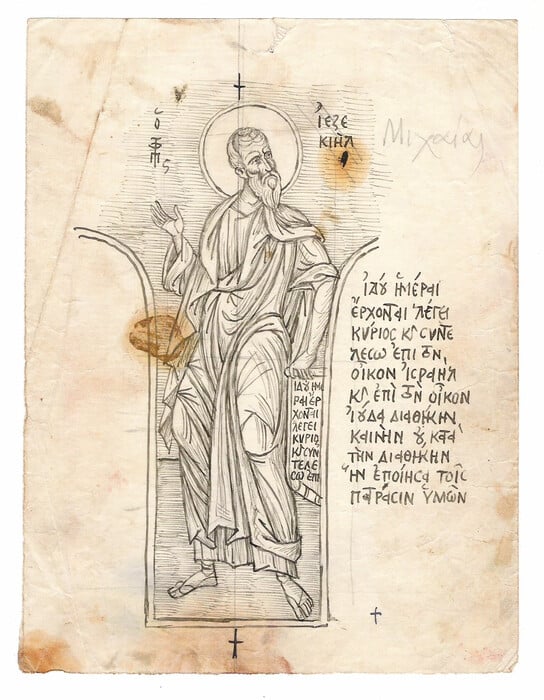 ὁ
ΠΡΦΗΣ
Ἰεζε
κιὴλ
Μιχαίας
ἰδού ἡμέραι
ἔρχονται λέγει
κύριος κ̀ συντε
λέσω ἐπὶ τὸν
οἶκον ἰσραὴλ
κ̀ ἐπὶ τὸν οἶκον
ἰούδα διαθήκην
καινὴν οὐ κατὰ
τὴν διαθήκην
ἣν ἐποίησα τοῖς
πατράσιν ὑμῶν
ἰδού ἡμέ
ραι ἔρ
χονται
λέγει
κύριος
κ̀ συν
τελέ
σω ἐπι